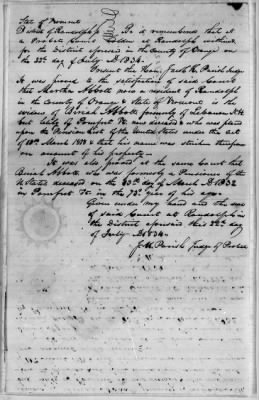 State of Vermont
District of Randolph SS Be it remembered that at
a Probate Court holden at Randolph within
for the District aforesaid in the County of Orange on
the 22d day of July AD 1834.
Present the Hon. Jacob K. Parish Judge
It was proved to satisfaction of said Court
that Martha Abbott now a resident of Randolph
in the County of Orange & State of Vermont is the
widow of Beriah Abbott formerly of Lebanon NH
but lately of Pomfret Vt. deceased & who was placed
upon the Pension List of the United States under the act
of 18th March 1818 & that his name was stricken therefrom
on account of his property
It was also proved at the same Court that
Beriah Abbott who was formerly a Pensioner of the
U States deceased on the 30th day of March AD 1832
in Pomfret Vt. in the 73d year of his age
Given under my hand and the seal
of said Court at Randolph in
the District aforesaid this 22d day
of July AD 1834
J. K. Parish Judge of Probate